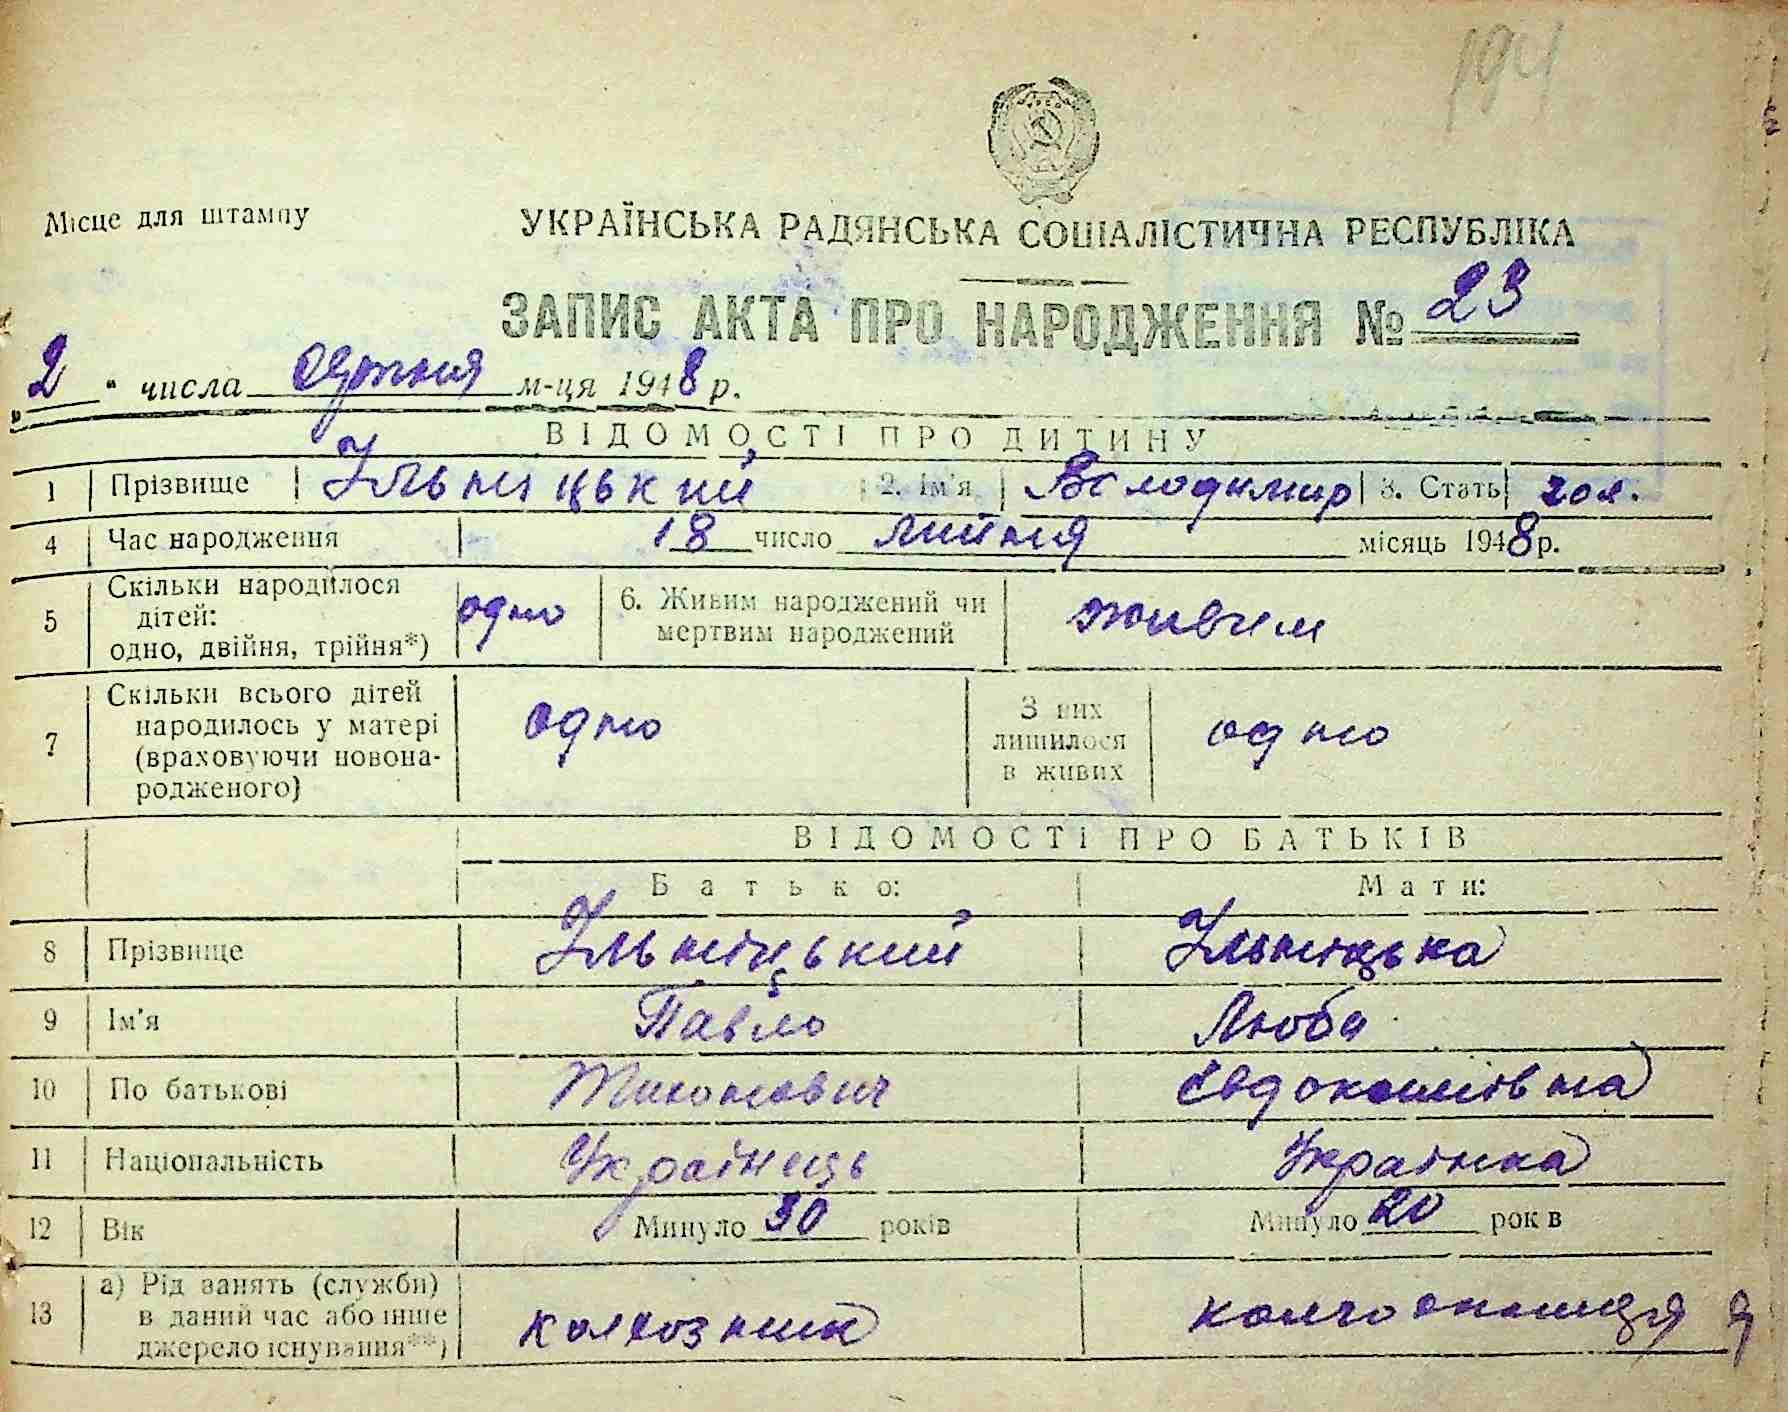 194
Місце для штампу
УКРАЇНСЬКА РАДЯНСЬКА СОЦІАЛІСТИЧНА РЕСПУБЛІКА
ЗАПИС АКТА ПРО НАРОДЖЕННЯ № 23
"2" числа серпня м-ця 1948 р.
ВІДОМОСТІ ПРО ДИТИНУ
1 Прізвище Ільницький 2. Ім'я Володимир 3. Стать чол.
4 Час народження 18 число липня місяць 1948 р.
5 Скільки народилося дітей: одно, двійня, трійня*) одно 6. Живим народжений чи мертвим народжений живим
7 Скільки всього дітей народилось у матері (враховуючи новонародженого) одно З них лишилося в живих одно
ВІДОМОСТІ ПРО БАТЬКІВ
Батько: Мати:
8 Прізвище Ільніцький Ільніцька
9 Ім'я Павло Люба
10 По батькові Тихонович Євдокимівна
11 Національність Українець Українка
12 Вік Минуло 30 років Минуло 20 років
13 а) Рід занять (служби) в даний час або інше джерело існування**) колхозник